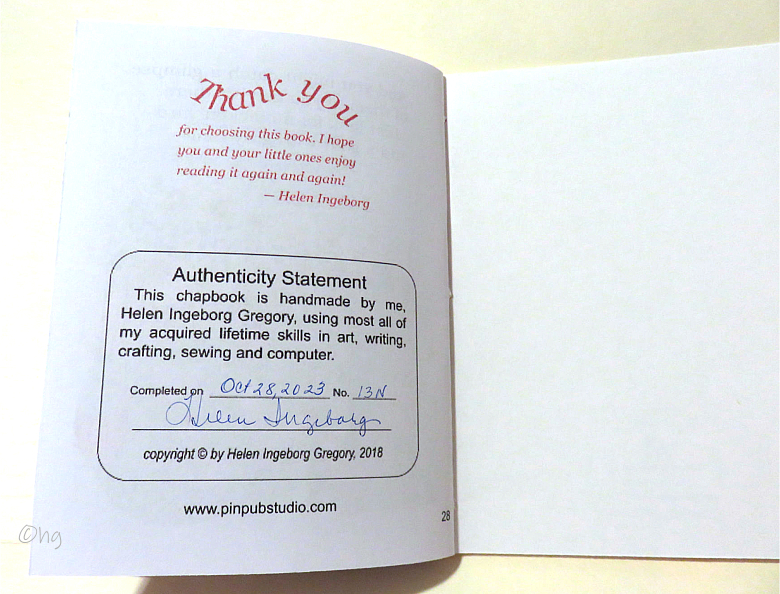 Thank you
for choosing this book. I hope
you and your little ones enjoy
reading it again and again!
— Helen Ingeborg
Authenticity Statement
This chapbook is handmade by me,
Helen Ingeborg Gregory, using most all of
my acquired lifetime skills in art, writing,
crafting, sewing and computer.
Completed on Oct 28, 2023 No. 13N
Helen Ingeborg
copyright © by Helen Ingeborg Gregory, 2018
www.pinpubstudio.com
28
©hg